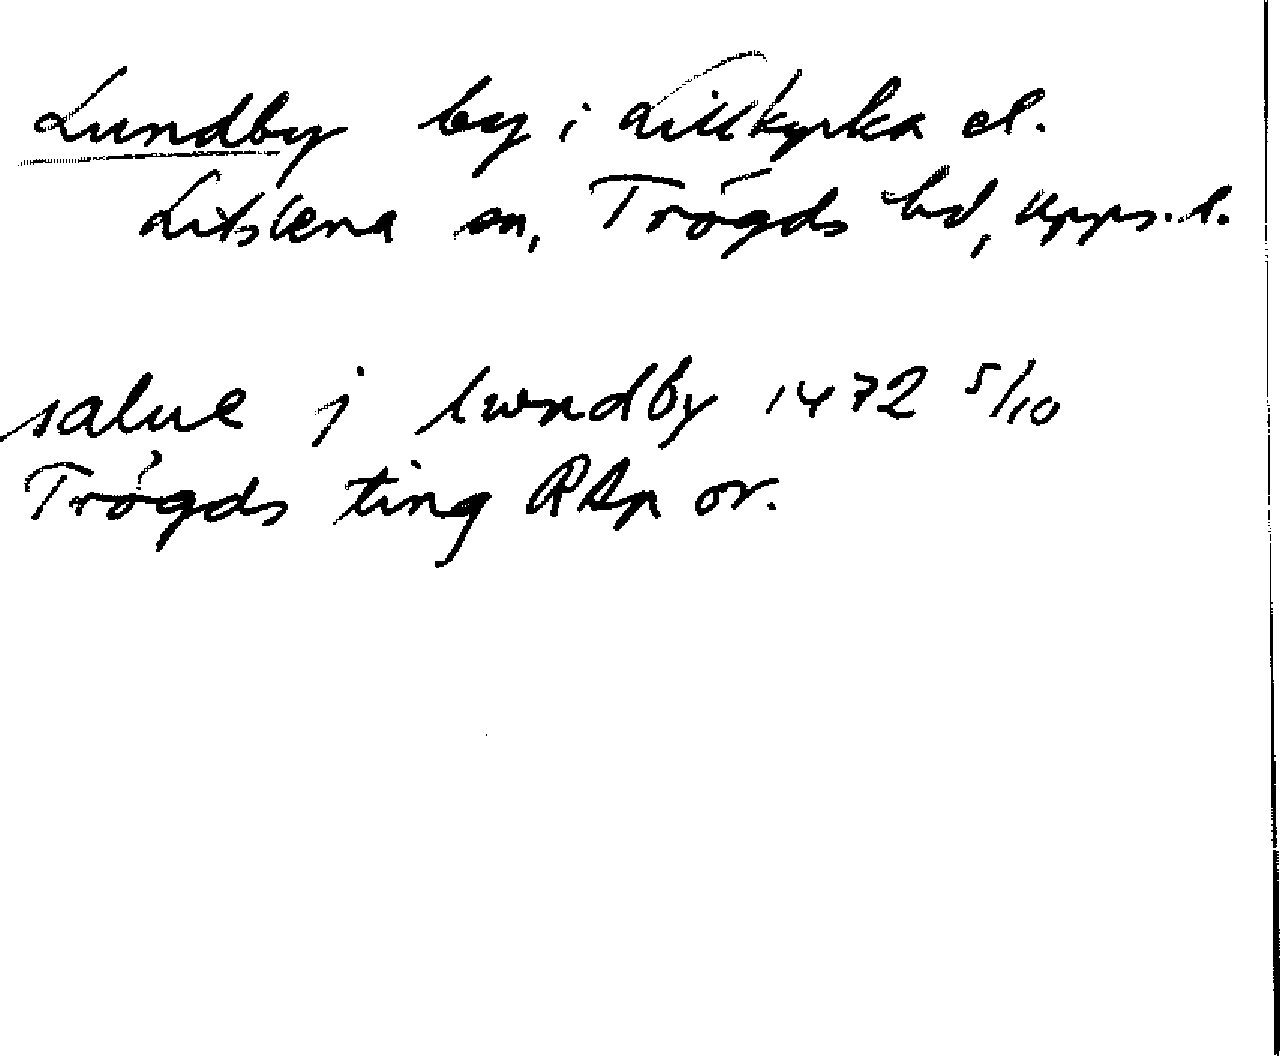 Lundby by i Lillkyrka el.
Litslena sn, Trögds hd, Upps. l.
salue j lwndby 1472 5/10
Trögds ting RAp or.